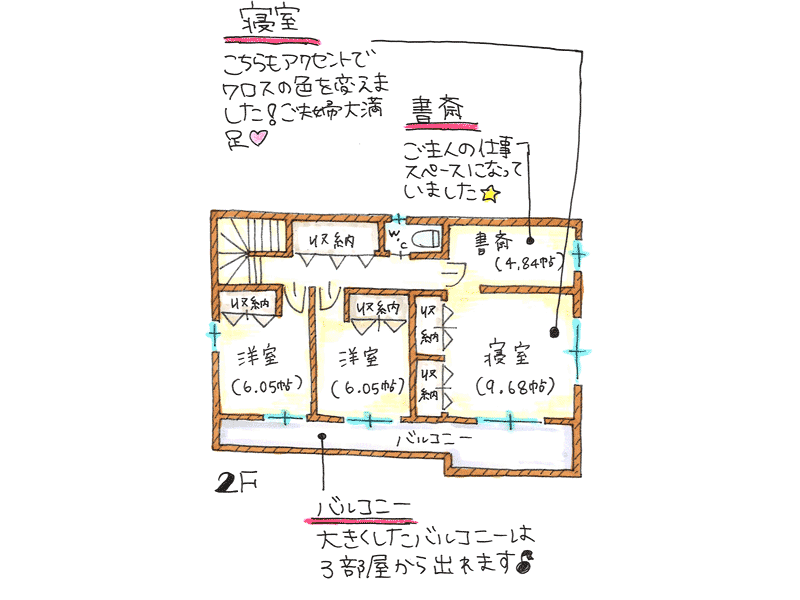 寝室
こちらもアクセントで
クロスの色を変えま
した!ご夫婦大満
足♡
書斎
ご主人の仕事
スペースになって
いました☆
収納
W.C
書斎
(4.84帖)
収納
収納
収納
収納
洋室
(6.05帖)
洋室
(6.05帖)
寝室
(9.68帖)
バルコニー
2F
バルコニー
大きくしたバルコニーは
3部屋から出れます♪